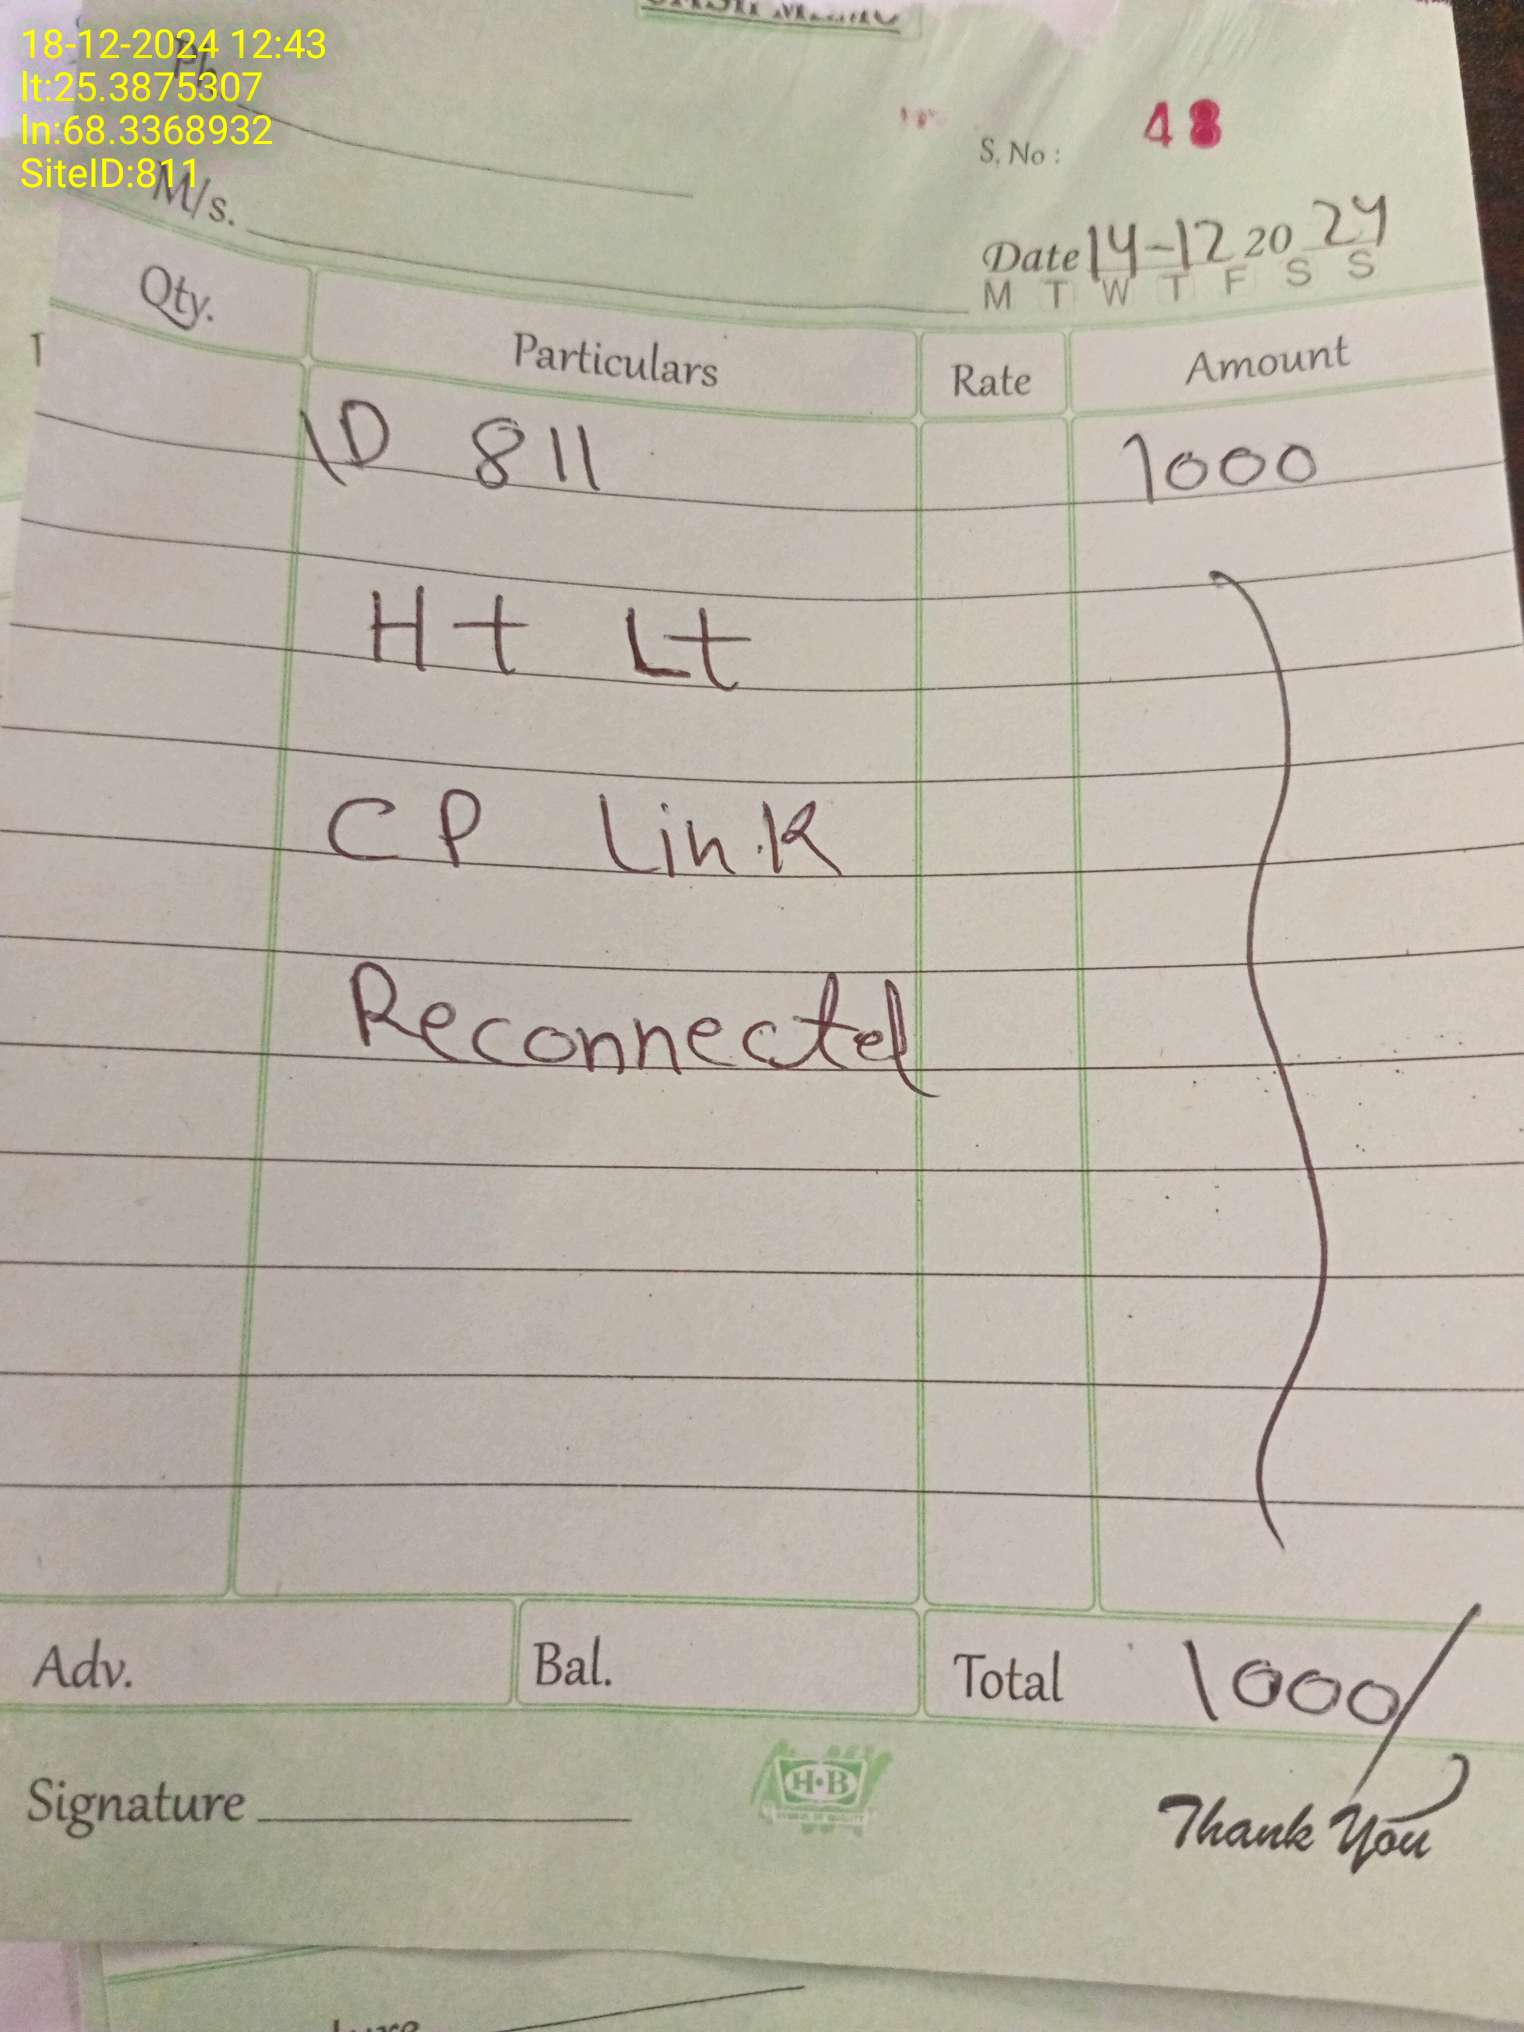 18-12-2024 12:43
lt:25.3875307
ln:68.3368932
SiteID:811
Ph
S. No : 48
M/s.
Date 14-12 20 24
M T W T F S S
Qty. Particulars Rate Amount
ID 811 1000
Ht Lt
CP Link
Reconnected
Adv. Bal. Total 1000/
Signature
H·B
Thank You